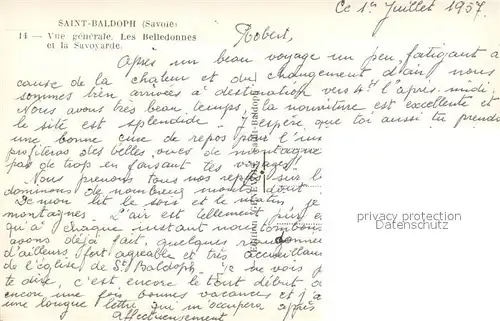 SAINT-BALDOPH (Savoie)
14 — Vue générale. Les Belledonnes
et la Savoyarde.
Ce 1er Juillet 1957.
Robert,
Après un beau voyage un peu fatigant à
cause de la chaleur et du changement d'air, nous
sommes bien arrivées à destination vers 4h l'après-midi
Nous avons très beau temps, la nourriture est excellente et
le site est splendide. J'espère que toi aussi tu prends
une bonne cure de repos pour l'
profiteras des belles vues de montagne
pas de trop en faisant tes voyages!
Nous prenons tous nos repas sur la
dominons de nombreux monts dont
De mon lit le soir et le matin, je
montagnes. L'air est tellement pur
qu'à chaque instant nous tombons
avons déjà fait quelques randonnées
d'ailleurs fort agréable et très accueillant
de l'église de St Baldoph. Je ne vois
te dire, c'est encore le tout début
encore une fois bonnes vacances et j'
une longue lettre qui m'occupera après
Affectueusement
privacy protection